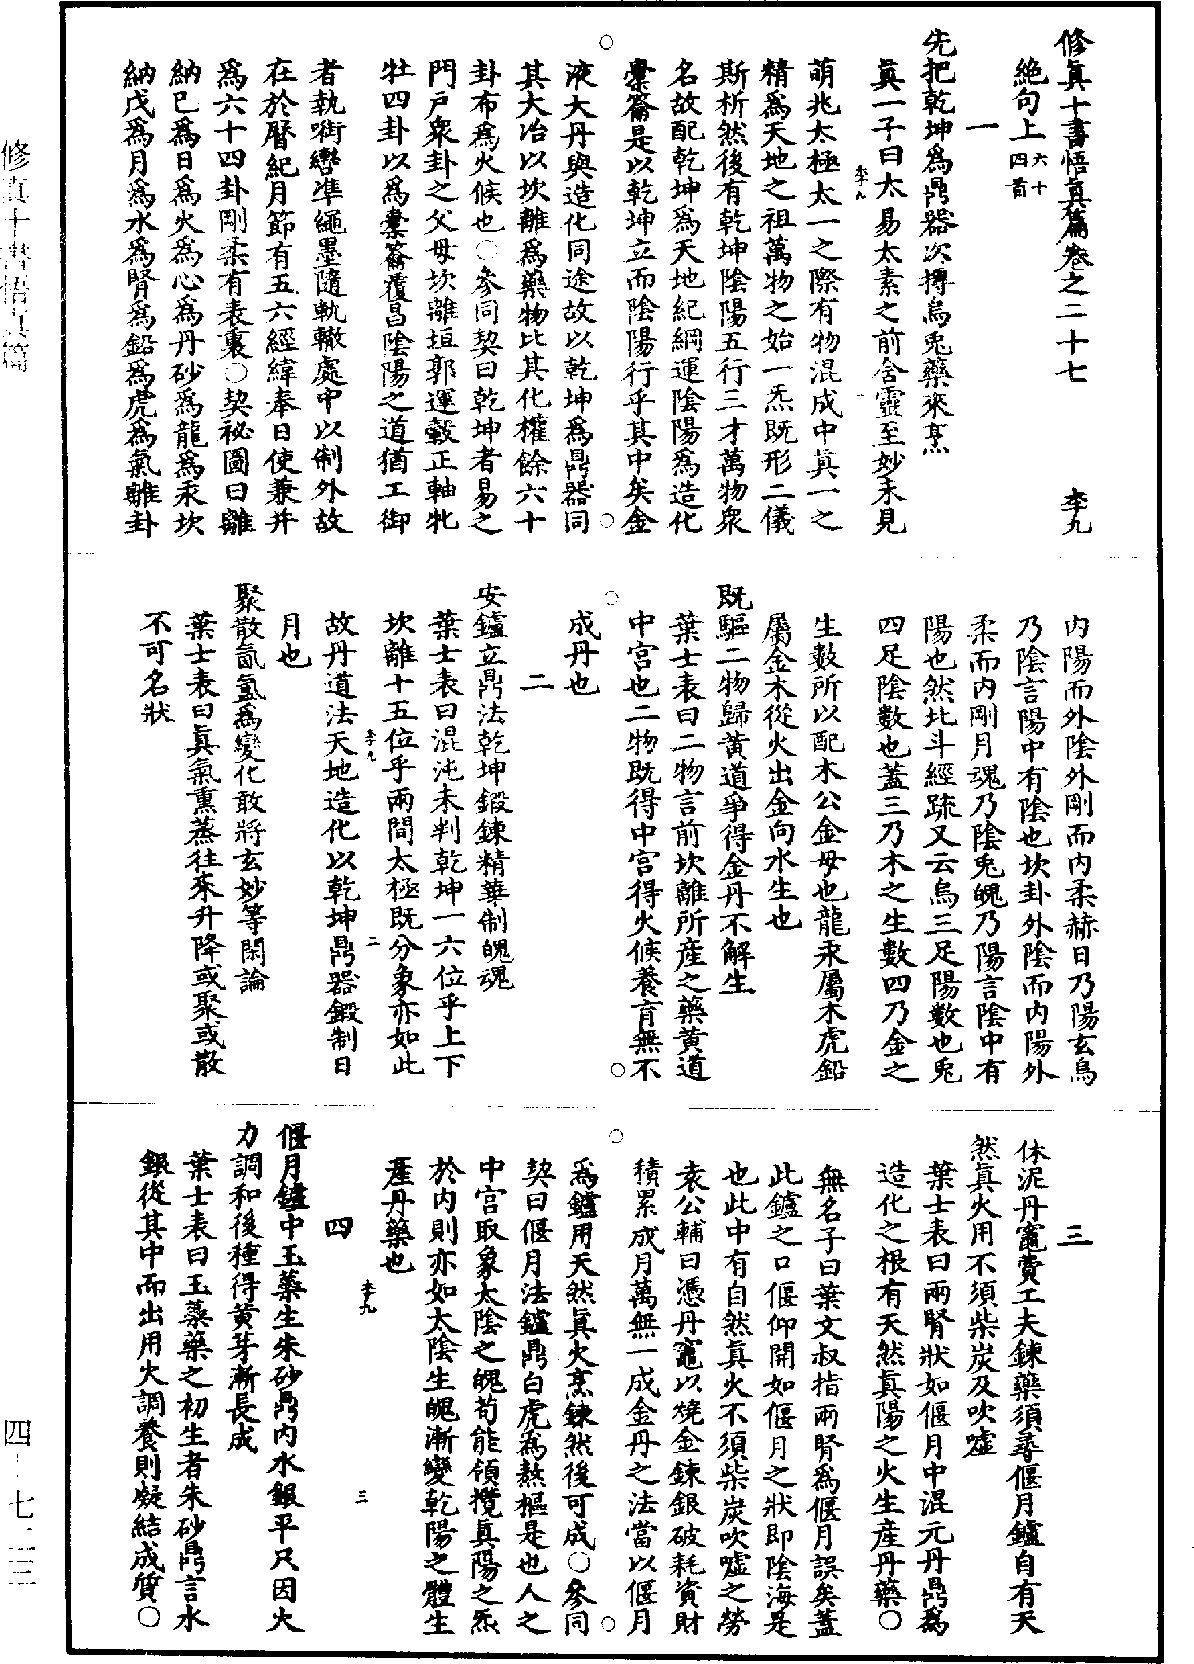 修真十書悟真篇卷之二十七 李九
絕句上六十四首
一
先把乾坤為鼎器次摶烏兎藥來烹
真一子曰太易太素之前含靈至妙未見
萌兆太極太一之際有物混成中真一之
精為天地之祖萬物之始一炁既形二儀
斯析然後有乾坤陰陽五行三才萬物衆
名故配乾坤為天地紀綱運陰陽為造化
橐籥是以乾坤立而陰陽行乎其中矣金
液大丹與造化同途故以乾坤為鼎器同
其大冶以坎離為藥物比其化權餘六十
卦布為火候也○參同契曰乾坤者易之
門戶衆卦之父母坎離垣郭運轂正軸牝
牡四卦以為橐籥覆昌陰陽之道猶工御
者執銜轡準繩墨隨軌轍處中以制外故
在於曆紀月節有五六經緯奉日使兼并
為六十四卦剛柔有表裏○契祕圖曰離
納己為日為火為心為丹砂為龍為汞坎
納戊為月為水為腎為鉛為虎為氣離卦
內陽而外陰外剛而內柔赫日乃陽玄烏
乃陰言陽中有陰也坎卦外陰而內陽外
柔而內剛月魂乃陰兎魄乃陽言陰中有
陽也然北斗經疏又云烏三足陽數也兎
四足陰數也蓋三乃木之生數四乃金之
生數所以配木公金母也龍汞屬木虎鉛
屬金木從火出金向水生也
既驅二物歸黃道爭得金丹不解生
葉士表曰二物言前坎離所產之藥黃道
中宮也二物既得中宮得火候養育無不
成丹也
二
安鑪立鼎法乾坤鍛鍊精華制魄魂
葉士表曰混沌未判乾坤一六位乎上下
坎離十五位乎兩間太極既分象亦如此
李九 二
故丹道法天地造化以乾坤鼎器鍛制日
月也
聚散氤氳為變化敢將玄妙等閑論
葉士表曰真氣熏蒸往來升降或聚或散
不可名狀
三
休泥丹竈費工夫鍊藥須尋偃月鑪自有天
然真火用不須柴炭及吹噓
葉士表曰兩腎狀如偃月中混元丹鼎為
造化之根有天然真陽之火生產丹藥○
無名子曰葉文叔指兩腎為偃月誤矣蓋
此鑪之口偃仰開如偃月之狀即陰海是
也此中有自然真火不須柴炭吹噓之勞
袁公輔曰憑丹竈以燒金鍊銀破耗資財
積累成月萬無一成金丹之法當以偃月
為鑪用天然真火烹鍊然後可成○參同
契曰偃月法鑪鼎白虎為熬樞是也人之
中宮取象太陰之魄苟能領攬真陽之炁
於內則亦如太陰生魄漸變乾陽之體生
產丹藥也
李九 三
四
偃月鑪中玉蘂生朱砂鼎內水銀平只因火
力調和後種得黃芽漸長成
葉士表曰玉蘂藥之初生者朱砂鼎言水
銀從其中而出用火調養則凝結成質○
修真十書悟真篇
四一七一三